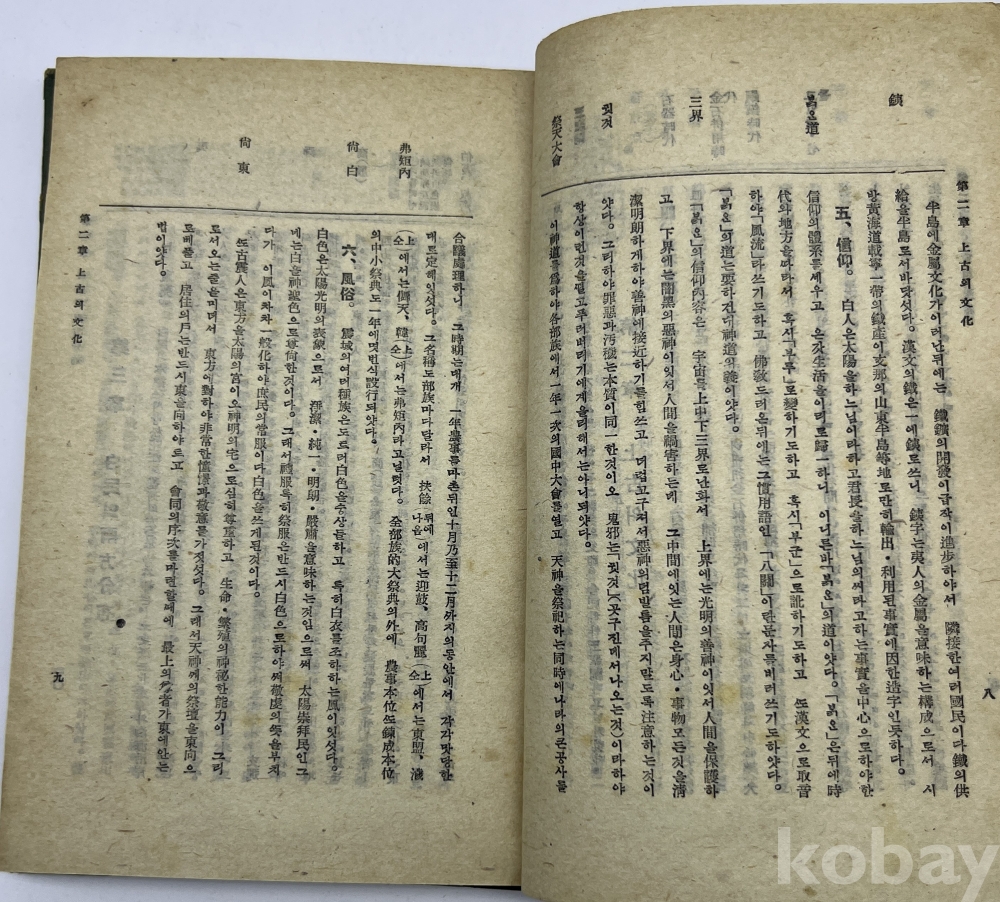 鐵
붉은道
三界
굿것
祭天大會
第二章 上古의文化
八
半島에金屬文化가이러난뒤에는 鐵鑛의開發이급작이進步하야서 隣接한여러國民이다鐵의供
給을半島로서바닷섯다。漢文의鐵은一에銕로쓰니 銕字는夷人의金屬을意味하는構成으로서 시
방黃海道載寧一帶의鐵產이支那의山東半島等地로만히輸出・利用된事實에因한造字인듯하다。
五、信仰。 白人은太陽을하느님이라하고君長을하느님의씨라고하는事實을中心으로하야한
信仰의體系를세우고 온갓生活을이리로歸一하니 이니른바「붉은」의道이얏다。「붉은」은뒤에時
代와地方을따라서 혹시「부루」로變하기도하고 혹시「부군」으로訛하기도하고 또漢文으로取音
하야「風流」라쓰기도하고 佛敎드러온뒤에는그慣用語인 「八關」이란문자를비러쓰기도하얏다。
「붉은」의道는要하건대神道의義이얏다。
「붉은」의信仰內容은 宇宙를上中下三界로난화서 上界에는光明의善神이잇서人間을保護하
고 下界에는闇黑의惡神이잇서人間을禍害하는데 그中間에잇는人間은身心・事物모든것을淸
潔明朗하게하야善神에接近하기를힘쓰고 더럽고구저서惡神의덤빌틈을주지말도록注意하는것이
얏다。그리하야罪惡과汚穢는本質이同一한것이오 鬼邪는「굿것」(곳구진데서나오는것)이라하야
항상이런것을떨고푸러버리기에게을리해서는아니되얏다。
이神道를爲하야各部族에서一年一次의國中大會를열고 天神을祭祀하는同時에나라의큰공사를
弗矩內
尙白
尙東
第二章 上古의文化
九
合議處理하니 그時期는대개 一年農事를마촌뒤인十月乃至十二月까지의동안에서 각각맛당한
대로定해잇섯다。그名稱도部族마다달라서 扶餘(뒤에나옴)에서는迎鼓、高句麗(上仝)에서는東盟、濊
(上仝)에서는儛天、韓(上仝)에서는弗矩內라고닐럿다。 全部族的大祭典의外에 農事本位또鍊成本位
의中小祭典도一年에몃번식設行되얏다。
六、風俗。 震域의여러種族은도르러白色을숭상들하고 특히白衣를조하하는風이잇섯다。
白色은太陽光明의表象으로서 淨潔・純一・明朗・嚴肅을意味하는것임으로써 太陽崇拜民인그
네는白을神邊色으로尊尙한것이다。그래서禮服특히祭服은반드시白色으로하야써敬虔의뜻을부치
다가 이風이차차一般化하야庶民의常服이다白色을쓰게된것이다。
또古震人은東方을太陽의宮이오神明의宅으로심히尊重하고 生命・繁殖의神秘한能力이 그리
로서오는줄을미더서 東方에對하야非常한憧憬과敬意를가젓섯다。그래서天神께의祭壇을東向으
로베풀고 居住의戶는반드시東을向하야르고 會同의序次를마련할때에 最上의勞者가東에안는
법이얏다。
kobay